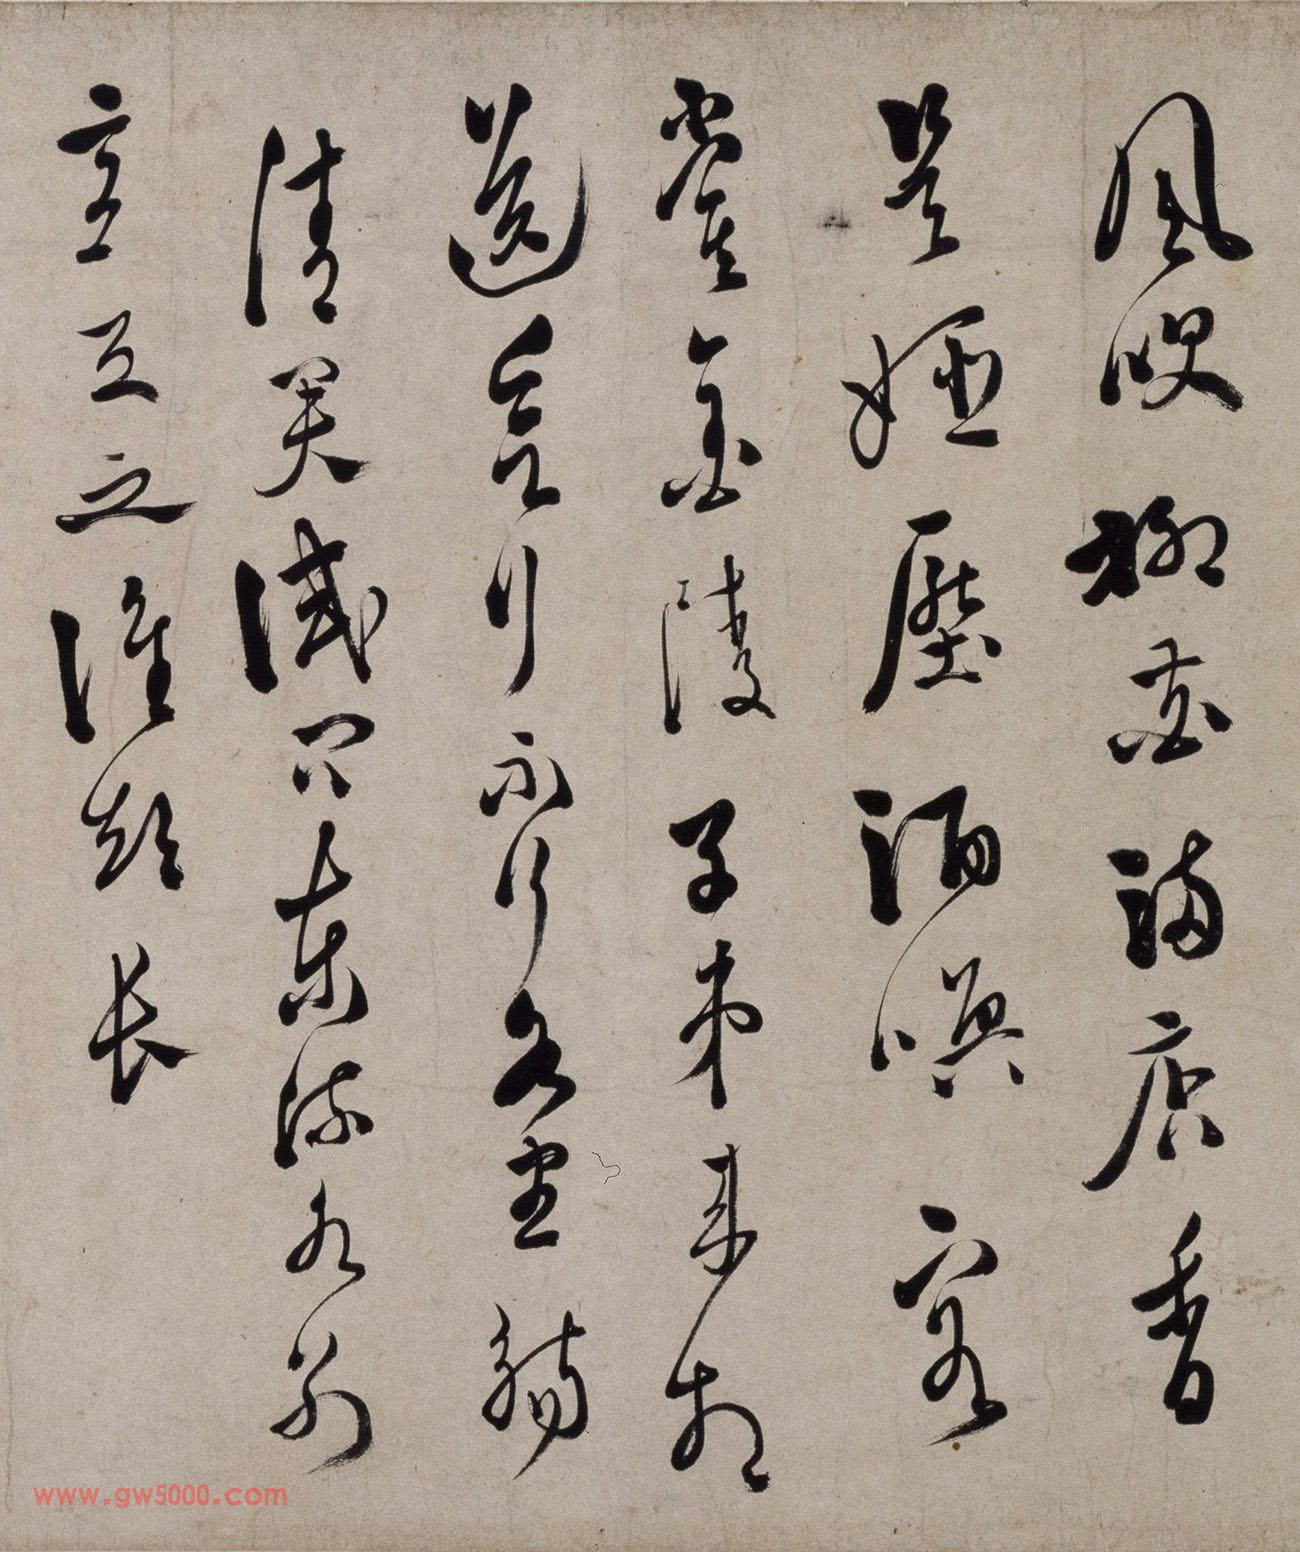 風吹柳花滿店香
吳姬壓酒喚客
嘗金陵子弟來相
送欲行不行各盡觴
請君試問東流水別
意與之誰短長
www.gw5000.com